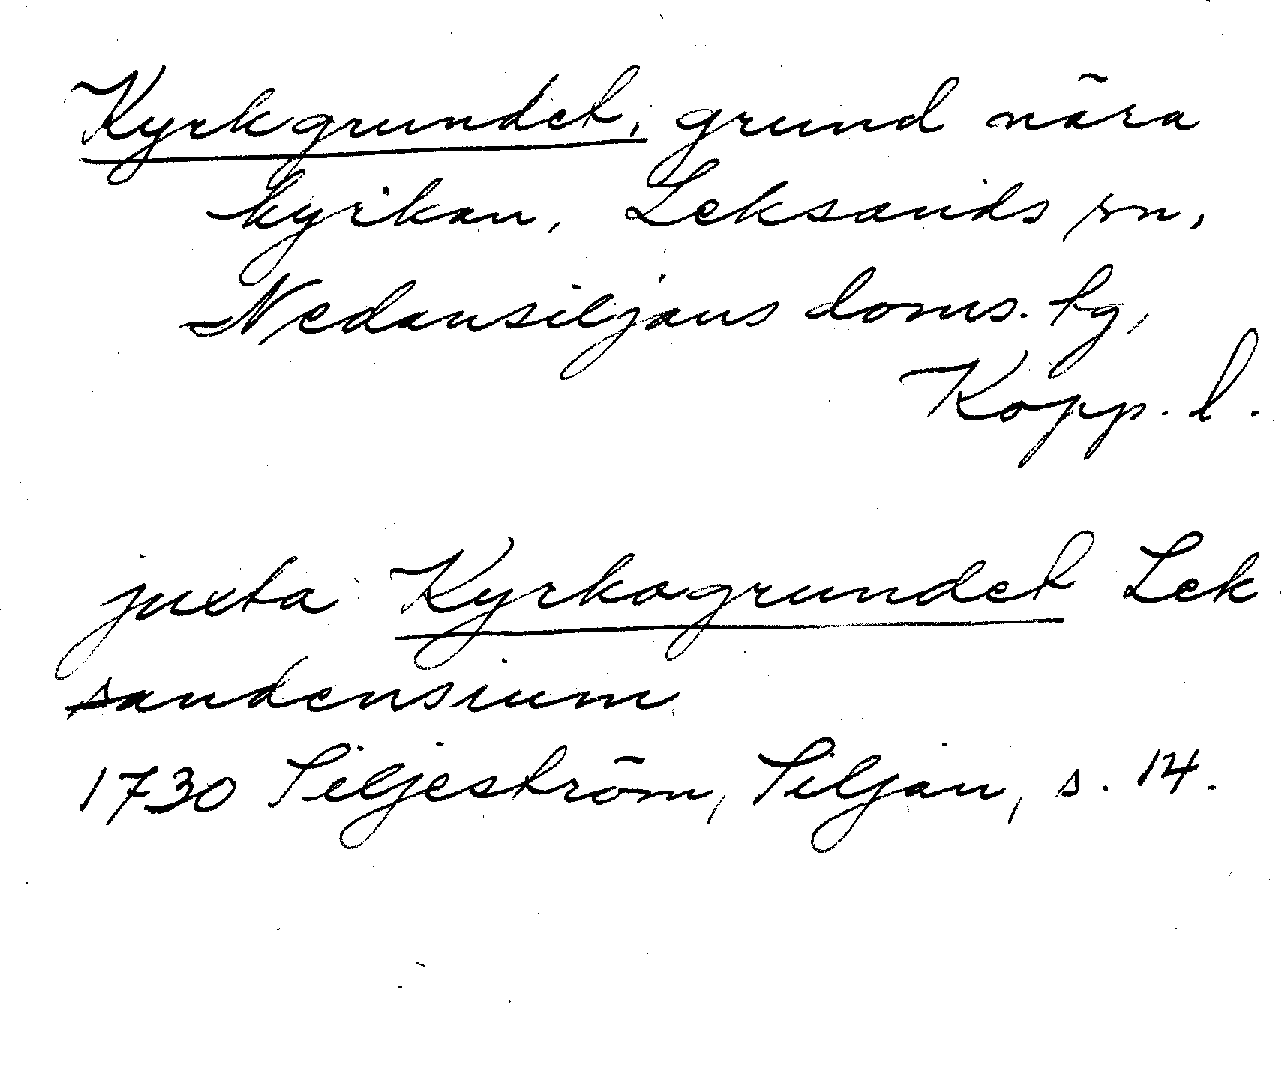 Kyrkgrundet, grund nära
kyrkan, Leksands sn,
Nedansiljans doms. tg,
Kopp. l.
juxta Kyrkogrundet Lek
sandensium
1730 Siljeström, Siljan, s. 14.